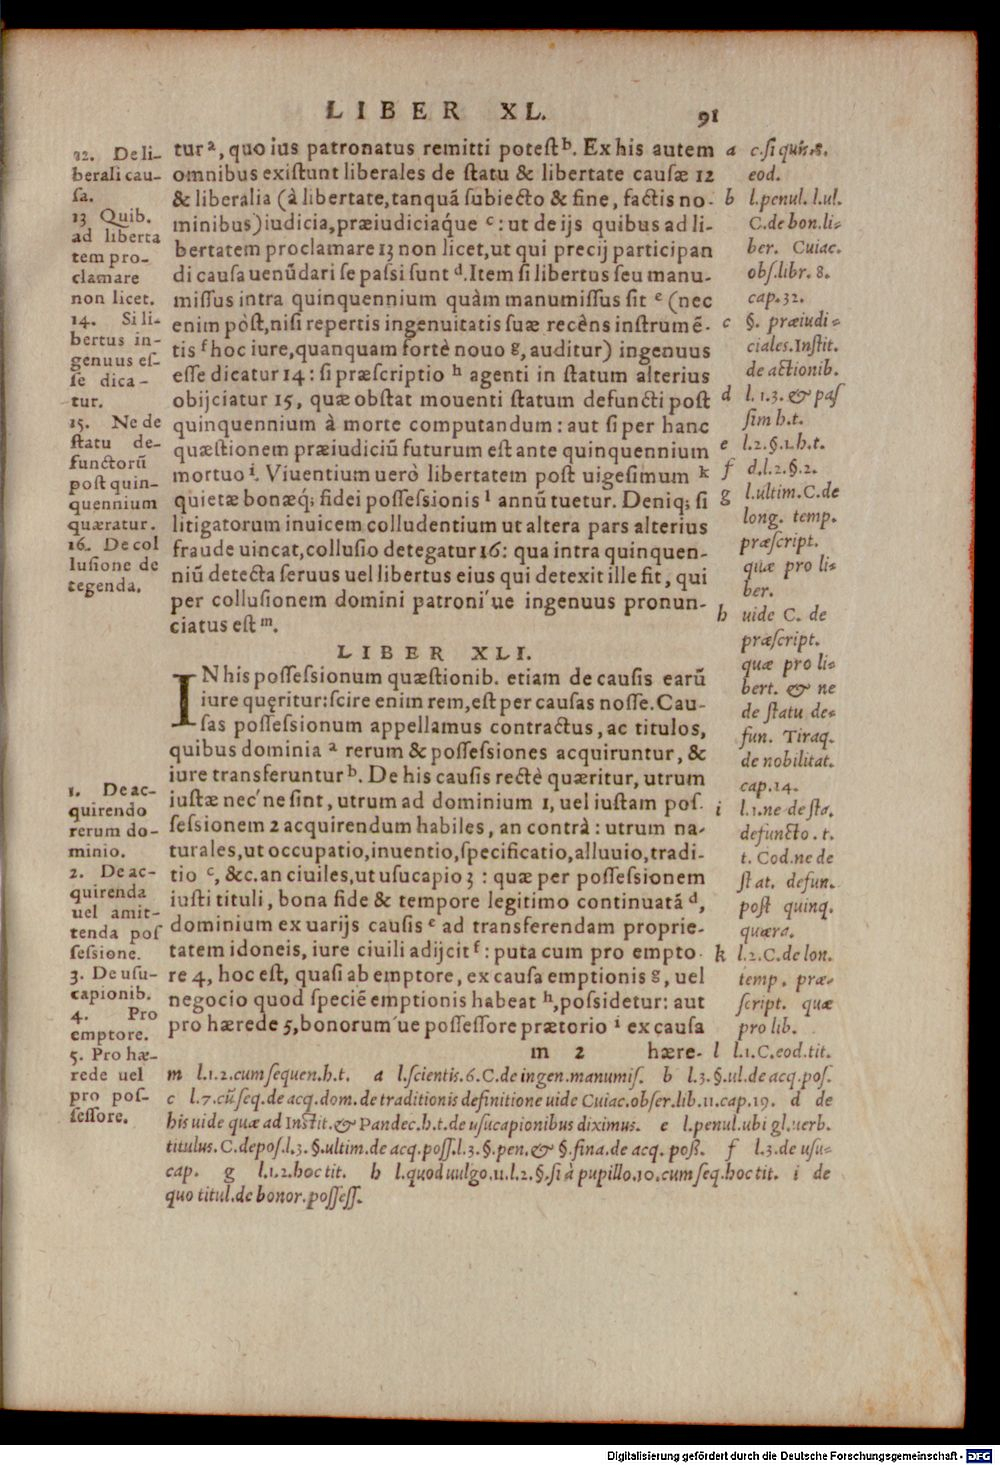 LIBER XL. 91
turᵃ, quo ius patronatus remitti poteſtᵇ. Ex his autem
omnibus exiſtunt liberales de ſtatu & libertate cauſæ 12
& liberalia (à libertate, tanquã ſubiecto & fine, factis no-
minibus) iudicia, præiudiciaq́ue ᶜ: ut de ijs quibus ad li-
bertatem proclamare 13 non licet, ut qui precij participan
di cauſa uenũdari ſe paſsi ſunt ᵈ. Item ſi libertus ſeu manu-
miſſus intra quinquennium quàm manumiſſus ſit ᵉ (nec
enim pòſt, niſi repertis ingenuitatis ſuæ recèns inſtrumẽ-
tis ᶠ hoc iure, quanquam fortè nouo ᵍ, auditur) ingenuus
eſſe dicatur 14: ſi præſcriptio ʰ agenti in ſtatum alterius
obijciatur 15, quæ obſtat mouenti ſtatum defuncti poſt
quinquennium à morte computandum: aut ſi per hanc
quæſtionem præiudiciũ futurum eſt ante quinquennium
mortuo ⁱ. Viuentium uerò libertatem poſt uigeſimum ᵏ
quietæ bonæq́; fidei poſſeſsionis ˡ annũ tuetur. Deniq; ſi
litigatorum inuicem colludentium ut altera pars alterius
fraude uincat, colluſio detegatur 16: qua intra quinquen-
niũ detecta ſeruus uel libertus eius qui detexit ille fit, qui
per colluſionem domini patroni´ue ingenuus pronun-
ciatus eſt ᵐ.
LIBER XLI.
IN his poſſeſsionum quæſtionib. etiam de cauſis earũ
iure quęritur: ſcire enim rem, eſt per cauſas noſſe. Cau-
ſas poſſeſsionum appellamus contractus, ac titulos,
quibus dominia ᵃ rerum & poſſeſsiones acquiruntur, &
iure transferuntur ᵇ. De his cauſis rectè quæritur, utrum
iuſtæ nec´ne ſint, utrum ad dominium 1, uel iuſtam poſ-
ſeſsionem 2 acquirendum habiles, an contrà: utrum na-
turales, ut occupatio, inuentio, ſpecificatio, alluuio, tradi-
tio ᶜ, &c. an ciuiles, ut uſucapio 3: quæ per poſſeſsionem
iuſti tituli, bona fide & tempore legitimo continuatã ᵈ,
dominium ex uarijs cauſis ᵉ ad transferendam proprie-
tatem idoneis, iure ciuili adijcit ᶠ: puta cum pro empto-
re 4, hoc eſt, quaſi ab emptore, ex cauſa emptionis ᵍ, uel
negocio quod ſpeciẽ emptionis habeat ʰ, poſsidetur: aut
pro hærede 5, bonorum´ue poſſeſſore prætorio ⁱ ex cauſa
m 2 hære-
12. De li-
berali cau-
ſa.
13 Quib.
ad liberta
tem pro-
clamare
non licet.
14. Si li-
bertus in-
genuus eſ-
ſe dica-
tur.
15. Ne de
ſtatu de-
functorũ
poſt quin-
quennium
quæratur.
16. De col
luſione de
tegenda.
1. De ac-
quirendo
rerum do-
minio.
2. De ac-
quirenda
uel amit-
tenda poſ
ſeſsione.
3. De uſu-
capionib.
4. Pro
emptore.
5. Pro hæ-
rede uel
pro poſ-
ſeſſore.
a c. ſi quis. 8.
eod.
b l. penul. l. ul.
C. de bon. li-
ber. Cuiac.
obſ. libr. 8.
cap. 32.
c §. præiudi-
ciales. Inſtit.
de actionib.
d l. 1. 3. & paſ
ſim h.t.
e l. 2. §. 1. h.t.
f d. l. 2. §. 2.
g l. ultim. C. de
long. temp.
præſcript.
quæ pro li-
ber.
h uide C. de
præſcript.
quæ pro li-
bert. & ne
de ſtatu de-
fun. Tiraq.
de nobilitat.
cap. 14.
i l. 1. ne de ſta.
defuncto. t.
t. Cod. ne de
ſtat. defun.
poſt quinq.
quæra.
k l. 2. C. de lon.
temp. præ-
ſcript. quæ
pro lib.
l l. 1. C. eod. tit.
m l. 1. 2. cum ſequen. h.t. a l. ſcientis. 6. C. de ingen. manumiſ. b l. 3. §. ul. de acq. poſ.
c l. 7. cũ ſeq. de acq. dom. de traditionis definitione uide Cuiac. obſer. lib. 11. cap. 19. d de
his uide quæ ad Inſtit. & Pandec. h.t. de uſucapionibus diximus. e l. penul. ubi gl. uerb.
titulus. C. depoſ. l. 3. §. ultim. de acq. poſſ. l. 3. §. pen. & §. fina. de acq. poß. f l. 3. de uſu-
cap. g l. 1. 2. hoc tit. h l. quod uulgo. 11. l. 2. §. ſi à pupillo. 10. cum ſeq. hoc tit. i de
quo titul. de bonor. poſſeſſ.
Digitalisierung gefördert durch die Deutsche Forschungsgemeinschaft - DFG